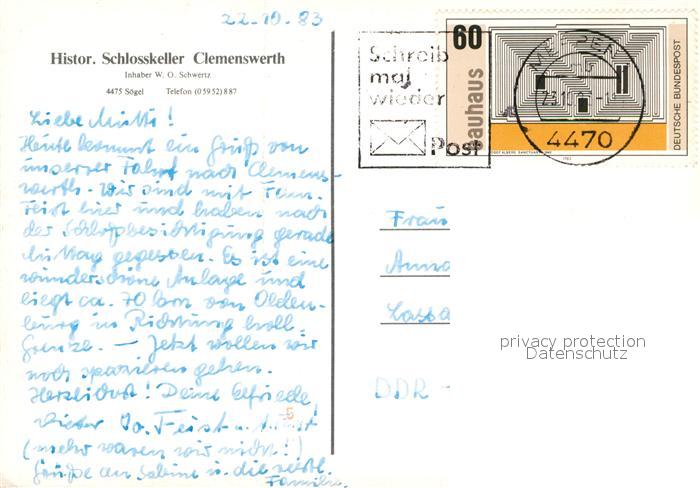 22.10.83
Histor. Schlosskeller Clemenswerth
Inhaber W. O. Schwertz
4475 Sögel Telefon (05952) 887
Liebe Mutti!
Heute kommt ein Gruß von
unserer Fahrt nach Clemens-
werth. Wir sind mit Fam.
Feist hier und haben nach
der Schloßbesichtigung gerade
Mittag gegessen. Es ist eine
wunderschöne Anlage und
liegt ca. 70 km von Olden-
burg in Richtung holl.
Grenze. — Jetzt wollen wir
noch spazieren gehen.
Herzlichst! Deine Elfriede,
Dieter Feist u.
(mehr waren wir nicht!)
Grüße an Sabine u. die restl.
Familie.
5
Schreib
mal
wieder
Post
60
bauhaus
DEUTSCHE BUNDESPOST
MEPPEN
4470
1983
Frau
Anna
DDR -
privacy protection
Datenschutz